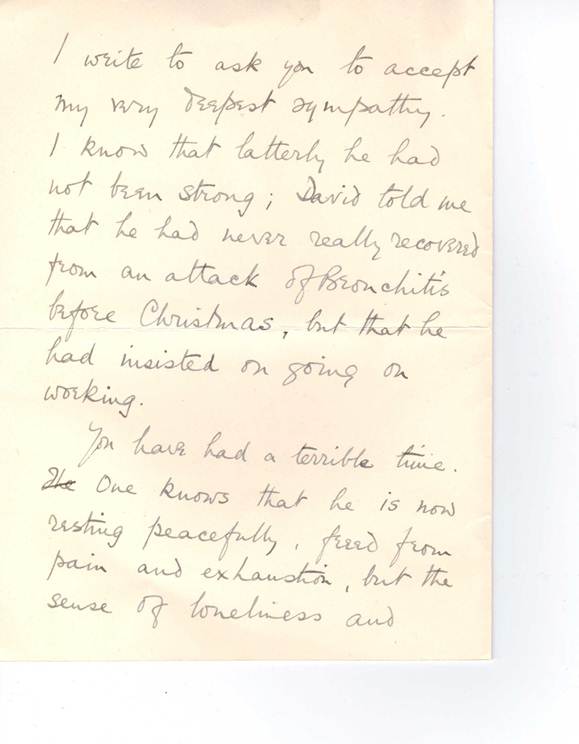 I write to ask you to accept
my very deepest sympathy.
I know that latterly he had
not been strong; David told me
that he had never really recovered
from an attack of Bronchitis
before Christmas, but that he
had insisted on going on
working.
You have had a terrible time.
The One knows that he is now
resting peacefully, freed from
pain and exhaustion, but the
sense of loneliness and